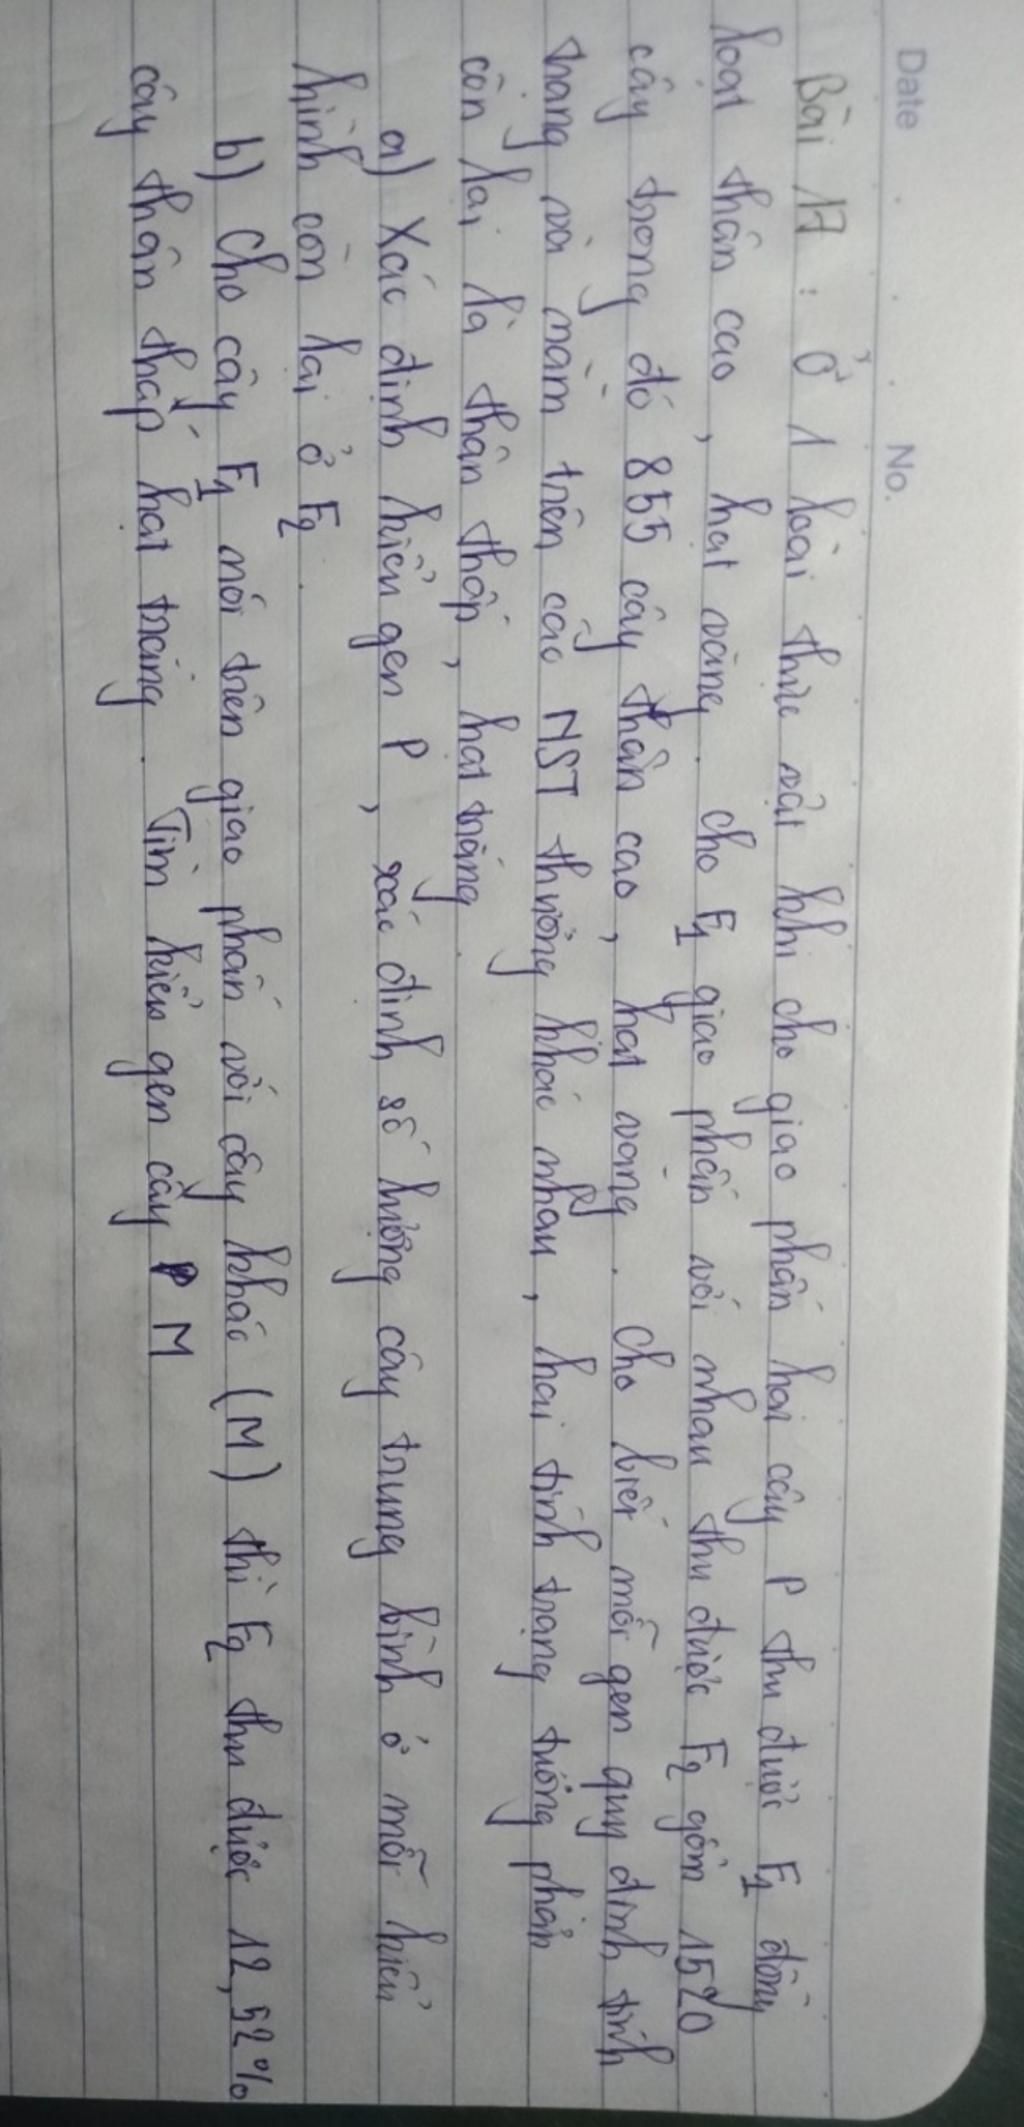 Date No.
Bài 17 : Ở 1 loài thực vật khi cho giao phấn hai cây P thu được F1 đồng
loạt thân cao, hạt vàng. cho F1 giao phấn với nhau thu được F2 gồm 1520
cây trong đó 855 cây thân cao, hạt vàng. cho biết mỗi gen quy định tính
trạng và nằm trên các NST thường khác nhau, hai tính trạng tương phản
còn lại là thân thấp, hạt trắng.
a) Xác định kiểu gen P, xác định số lượng cây trung bình ở mỗi kiểu
hình còn lại ở F2.
b) Cho cây F1 nói trên giao phấn với cây khác (M) thì F2 thu được 12,52%
cây thân thấp hạt trắng. Tìm kiểu gen cây M